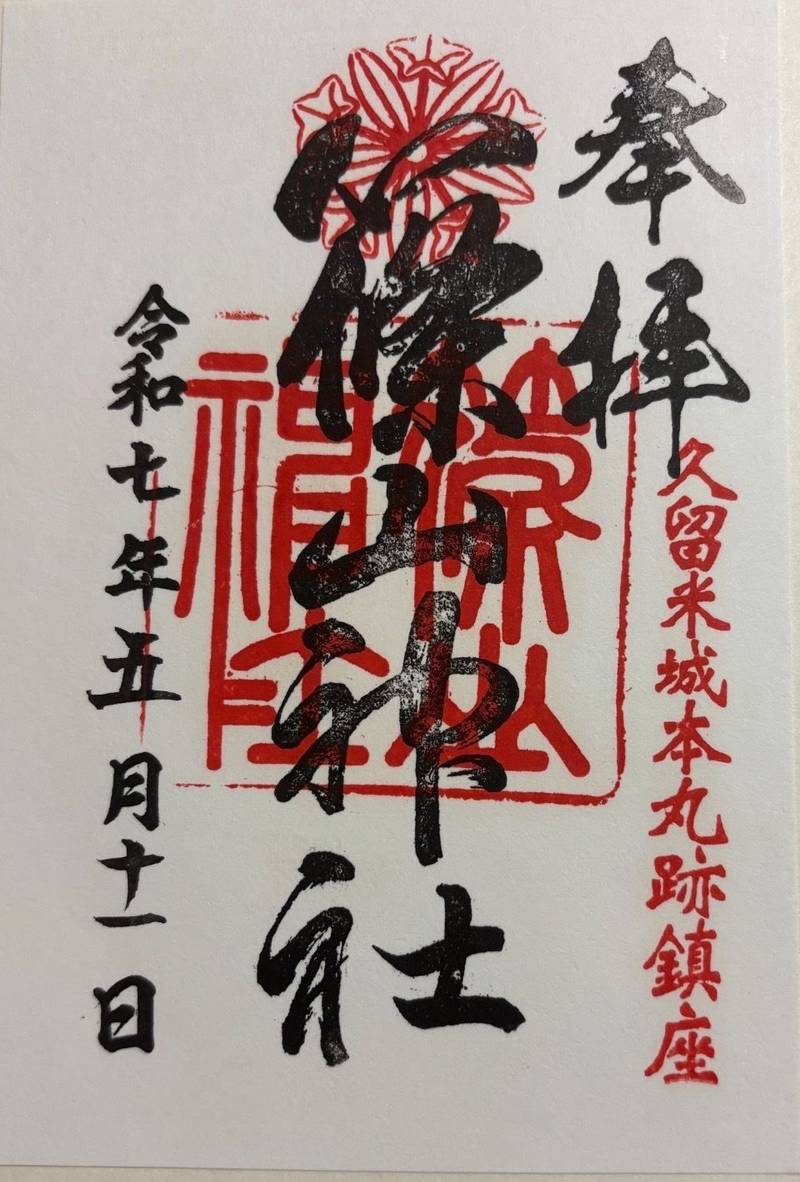 奉拝
久留米城本丸跡鎮座
篠山神社
令和七年五月十一日